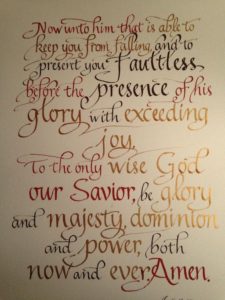 Now unto him that is able to
keep you from falling, and to
present you faultless
before the presence of his
glory with exceeding
joy,
To the only wise God
our Savior, be glory
and majesty, dominion
and power, both
now and ever. Amen.